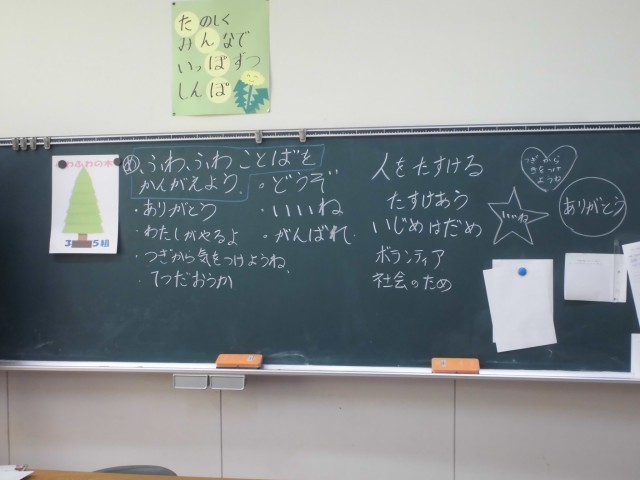 たのしく
みんなで
いっぽずつ
しんぽ
ふわふわの木
5組
め ふわふわことばを
かんがえよう。
・ありがとう
・わたしがやるよ
・つぎから気をつけようね、
・てつだおうか
・どうぞ
・いいね
・がんばれ
人をたすける
たすけあう
いじめはだめ
ボランティア
社会のため
つぎから
きをつけ
ようね
いいね
ありがとう